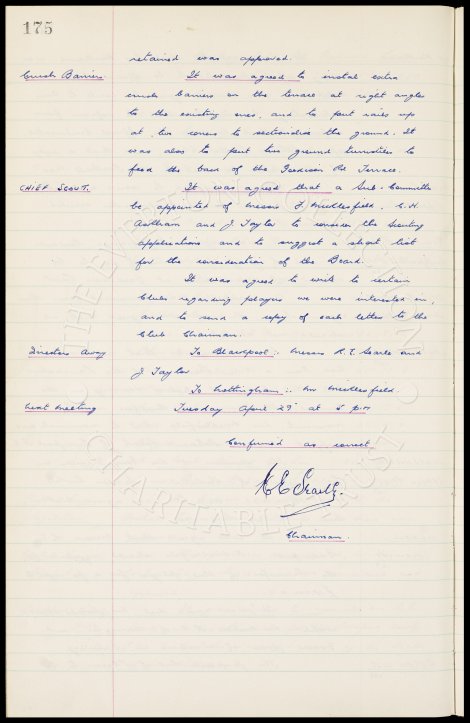 175
retained was approved.
Crush Barriers It was agreed to instal extra
crush barriers on the terrace at right angles
to the existing ones, and to put rails up
at two corners to sectionalise the ground. It
was also to put two ground turnstiles to
feed the back of the Goodison Rd Terrace.
CHIEF SCOUT. It was agreed that a Sub-Committee
be appointed of Messrs F Micklesfield, C.H.
Askham and J Taylor to consider the Scouting
applications and to suggest a short list
for the consideration of the Board.
It was agreed to write to certain
Clubs regarding players we were interested in,
and to send a copy of each letter to the
Club Chairman.
Directors Away To Blackpool:- Messrs R.E. Searle and
J Taylor
To Nottingham:- Mr Micklesfield.
Next Meeting Tuesday April 29 at 5 pm
Confirmed as correct
Searle.
Chairman.
CHARITABLE TRUST